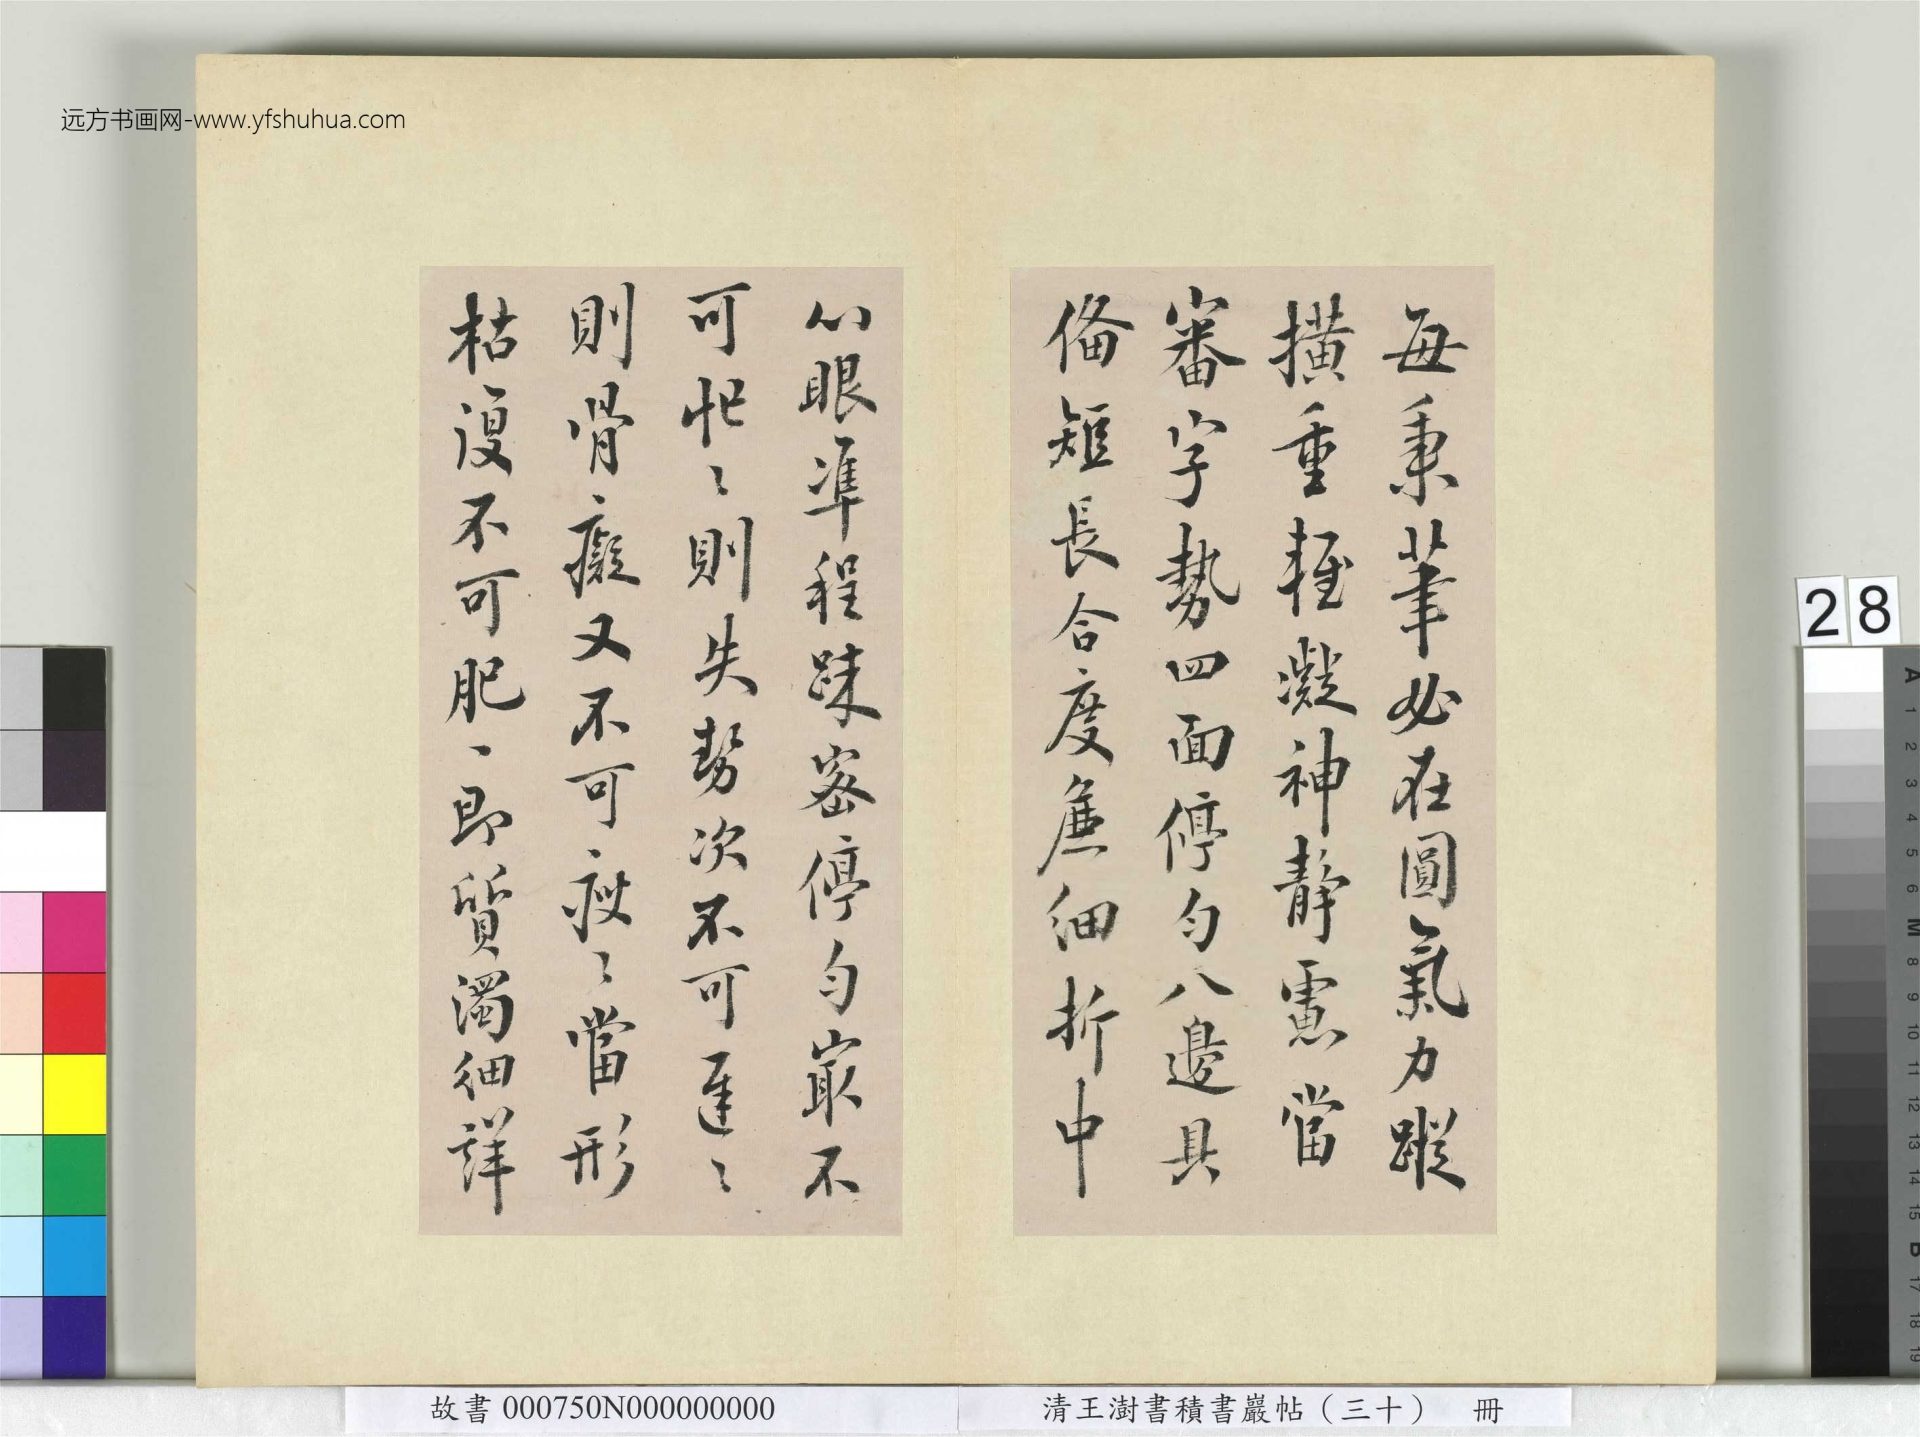 远方书画网-www.yfshuhua.com
每秉筆必在圓氣力蹤
擴重輕凝神靜慮當
審字勢四面停勻八邊具
俻短長合度麁細折中
心眼準程踈密停勻㝡不
可忙〻則失勢次不可遲〻
則骨癡又不可瘦〻當形
枯復不可肥〻即質濁細詳
28
故書 000750N000000000
清王澍書積書巖帖（三十） 冊
A
1
2
3
4
5
6
M
8
9
10
11
12
13
14
15
B
17
18
19